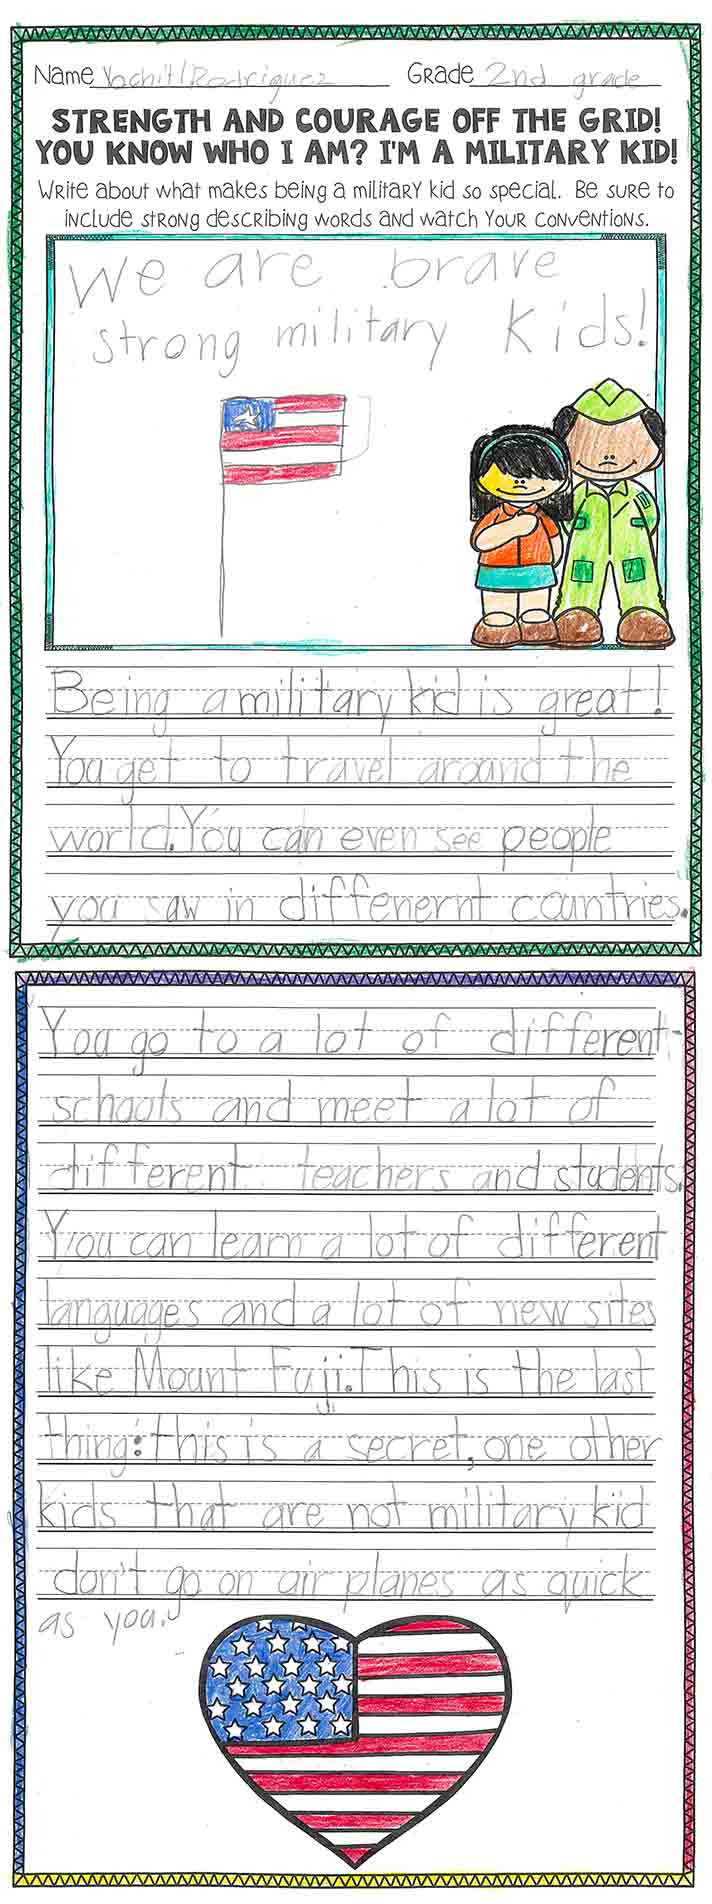 Name Xochitl Rodriguez Grade 2nd grade
STRENGTH AND COURAGE OFF THE GRID!
YOU KNOW WHO I AM? I'M A MILITARY KID!
Write about what makes being a military kid so special. Be sure to
include strong describing words and watch your conventions.
We are brave
strong military kids!
Being a military kid is great!
You get to travel around the
world. You can even see people
you saw in diffenernt countries.
You go to a lot of different
schools and meet a lot of
different teachers and students.
You can learn a lot of different
languages and a lot of new sites
like Mount Fuji. This is the last
thing: this is a secret, one other
kids that are not military kid
don't go on air planes as quick
as you.